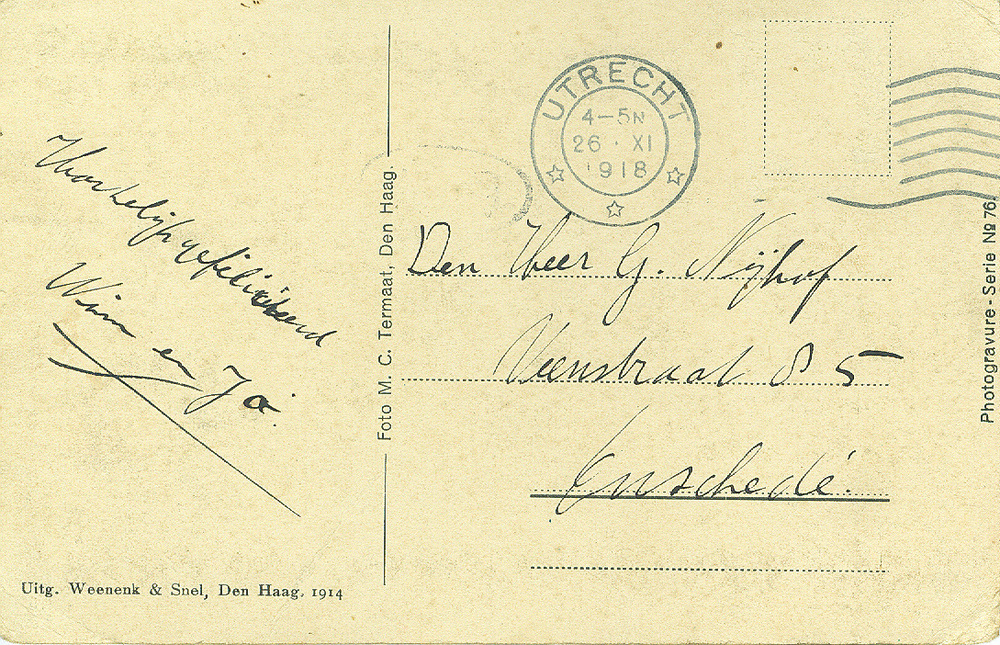 Hartelijk gefeliciteerd
Wim en Jo.
Uitg. Weenenk & Snel, Den Haag. 1914
Foto M. C. Termaat, Den Haag.
UTRECHT
4-5N
26 · XI
1918
Den Heer G. Nijhof
Veenstraat 85
Enschedé.
Photogravure - Serie № 76.